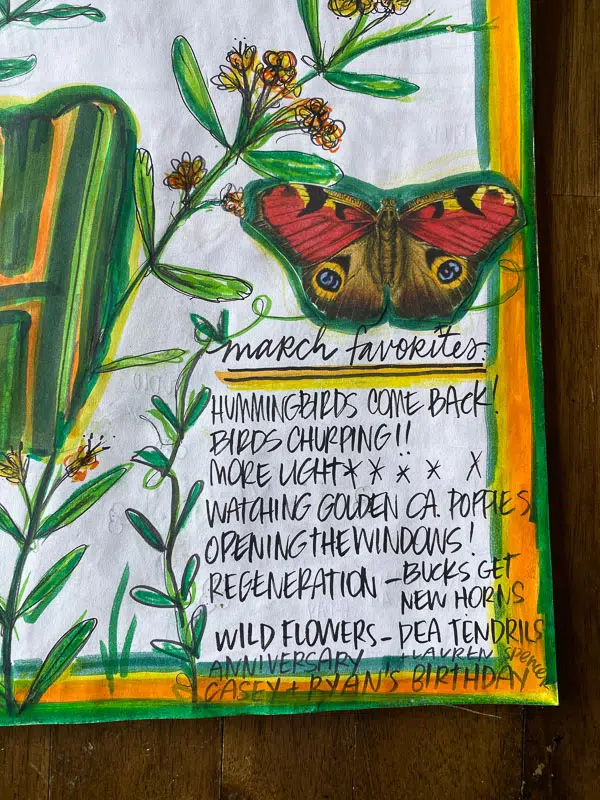 march favorites:
HUMMINGBIRDS COME BACK!
BIRDS CHURPING!!
MORE LIGHT * * * * *
WATCHING GOLDEN CA. POPPIES
OPENING THE WINDOWS!
REGENERATION – BUCKS GET
NEW HORNS
WILD FLOWERS – PEA TENDRILS
ANNIVERSARY + LAUREN Spencer
CASEY + RYAN'S BIRTHDAY